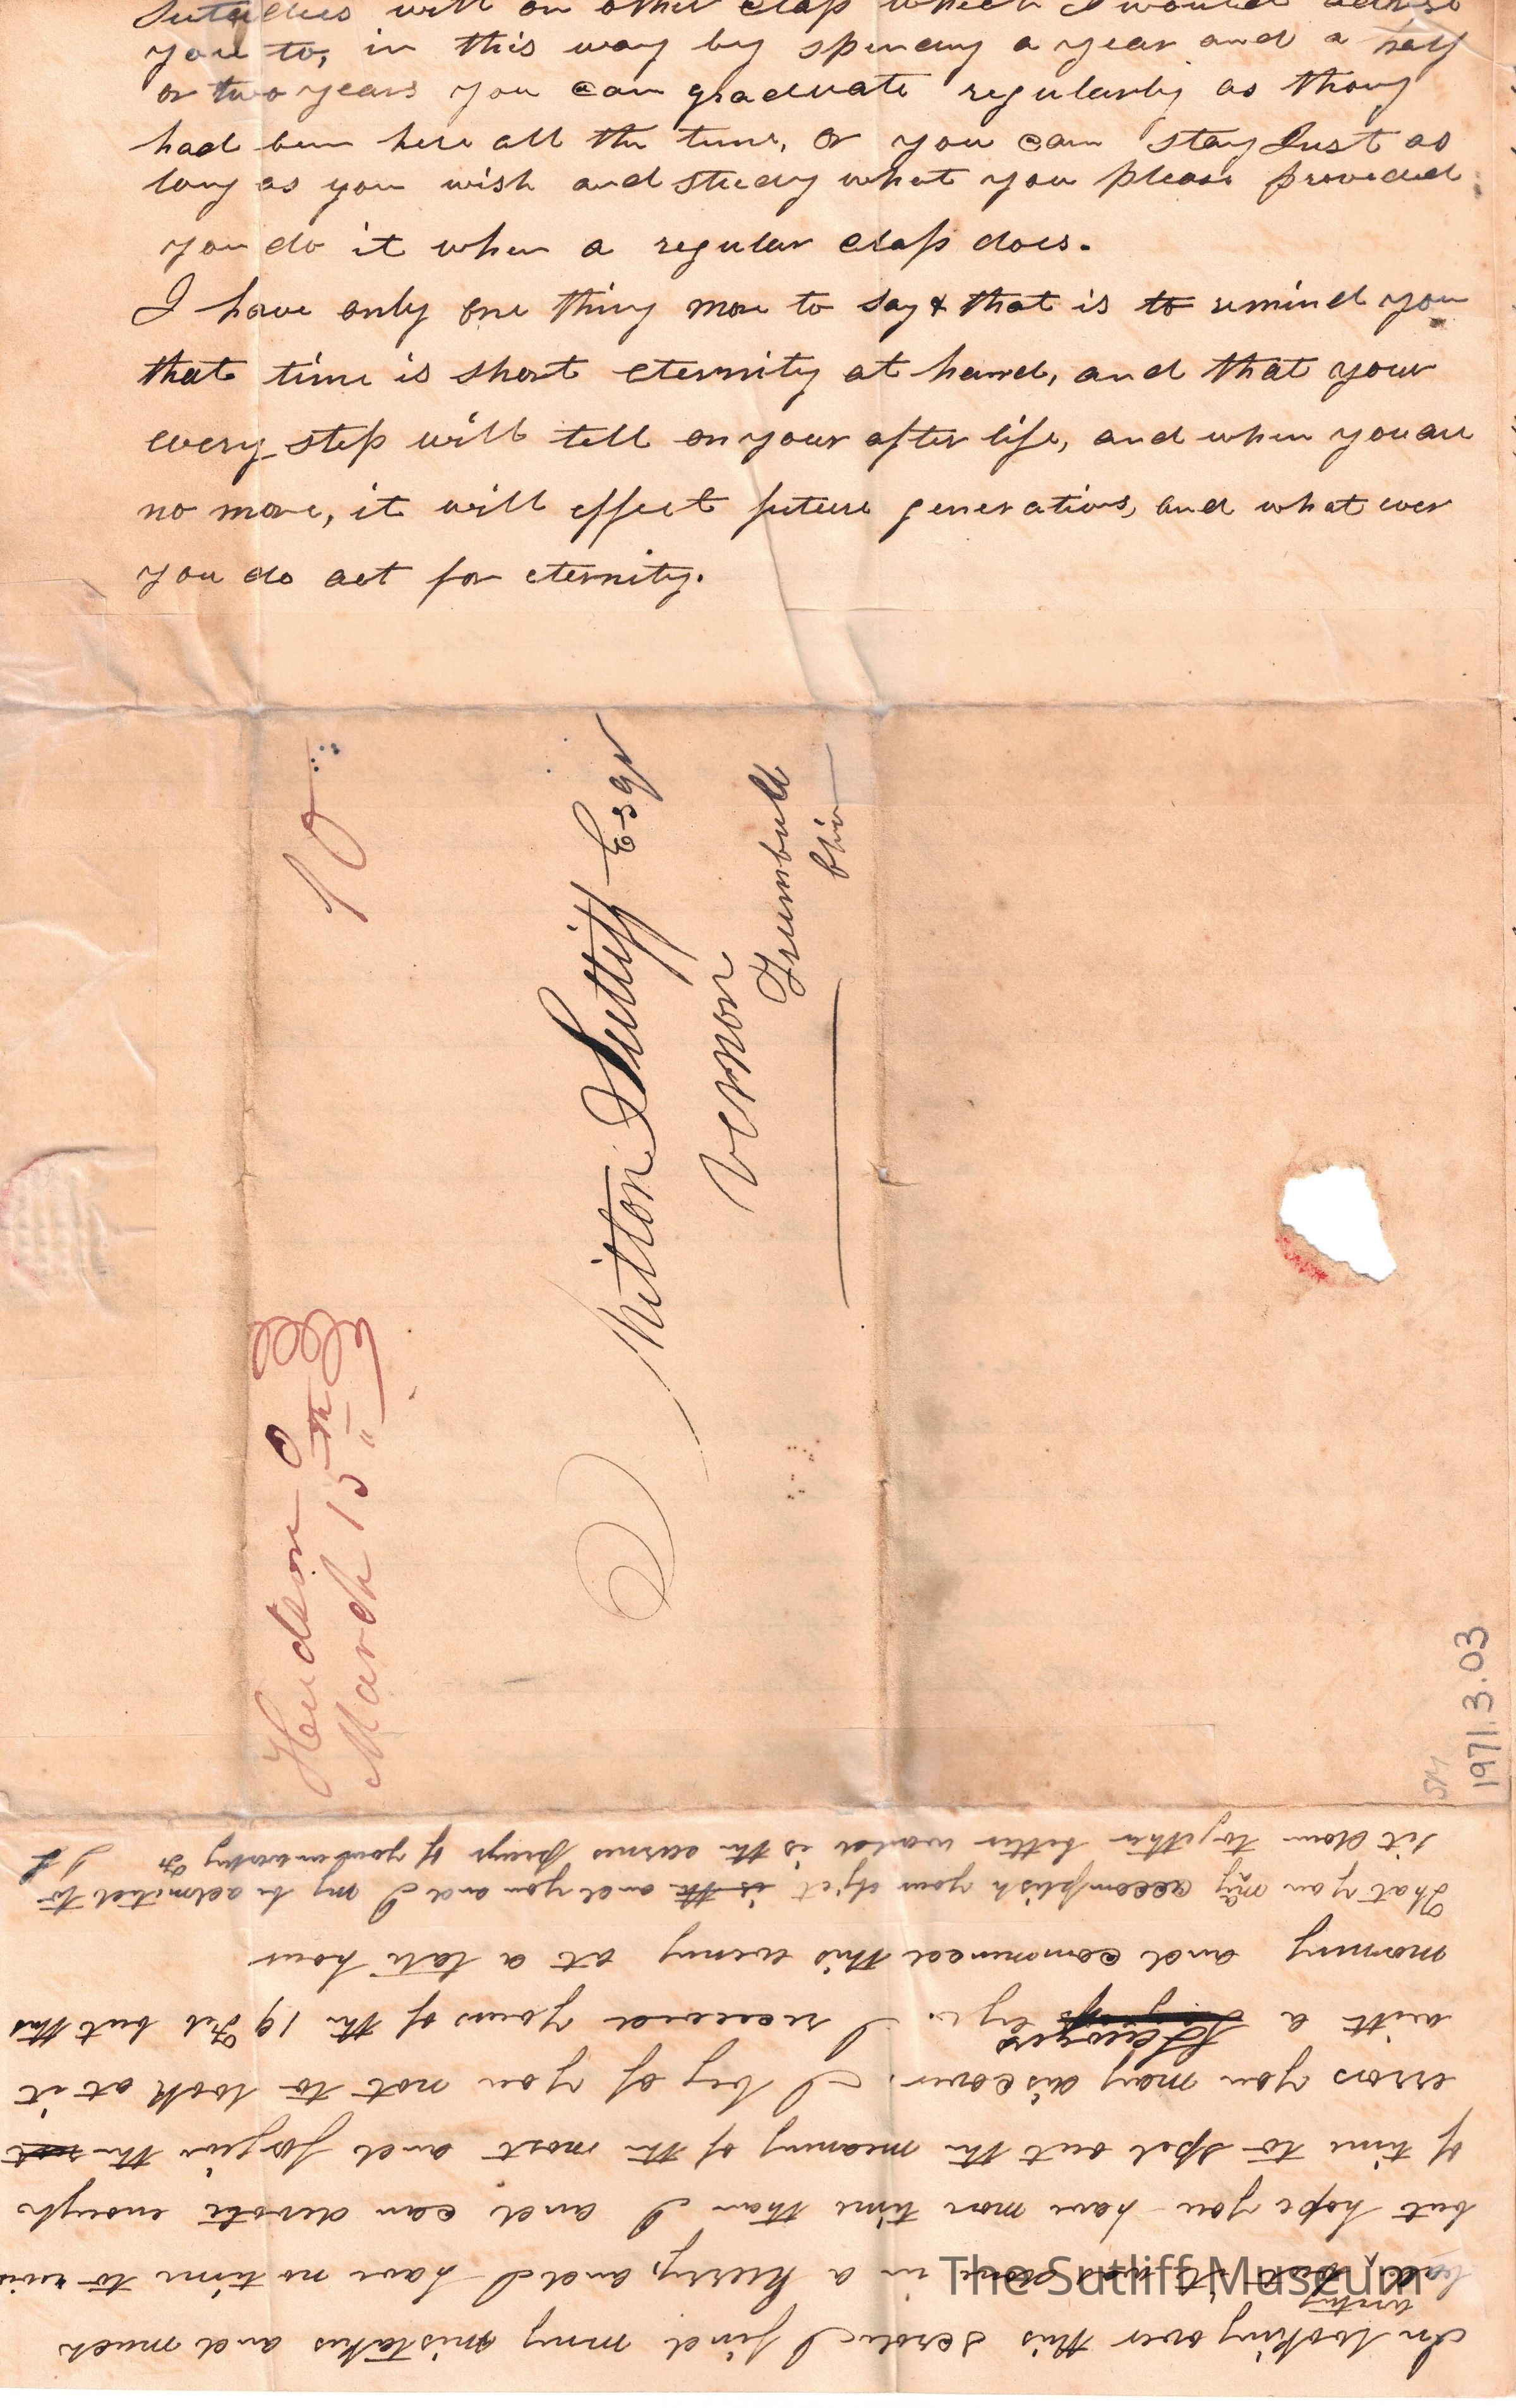 Sutdies with an other class which I would advise
you to, in this way by spending a year and a half
or two years you can graduate regularly as thoug
had been here all the time, or you can stay Just as
long as you wish and study what you please provided
you do it when a regular class does.
I have only one thing more to say & that is to remind you
that time is short eternity at hand, and that your
every step will tell on your after life, and when you are
no more, it will effect future generations, and what ever
you do act for eternity.
10
Hudson O
March 15th
Milton Sutliff Esqr
Vernon
Trumbull
Ohio
SM
1971.3.03
In looking over this scrole I find many mistakes and much
bad writing it was done in a hurry, and I have no time to
but hope you have more time than I and can devote enough
of time to spel out the meaning of the most and forgive the
errors you may discover. I beg of you not to look at it
with a Lawyers eye. I received yours of the 19 Feb but this
morning and commenced this evening at a late hour
That you may accomplish your object is the and you and I my be admitted to
sit down together better world is the earnest prayr of your unworthy
The Sutliff Museum